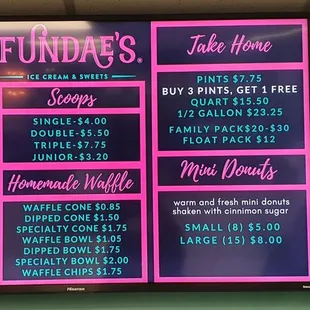 FUNDAE'S.
ICE CREAM & SWEETS
Scoops
SINGLE-$4.00
DOUBLE-$5.50
TRIPLE-$7.75
JUNIOR-$3.20
Homemade Waffle
WAFFLE CONE $0.85
DIPPED CONE $1.50
SPECIALTY CONE $1.75
WAFFLE BOWL $1.05
DIPPED BOWL $1.75
SPECIALTY BOWL $2.00
WAFFLE CHIPS $1.75
Take Home
PINTS $7.75
BUY 3 PINTS, GET 1 FREE
QUART $15.50
1/2 GALLON $23.25
FAMILY PACK$20-$30
FLOAT PACK $12
Mini Donuts
warm and fresh mini donuts
shaken with cinnimon sugar
SMALL (8) $5.00
LARGE (15) $8.00
Hisense